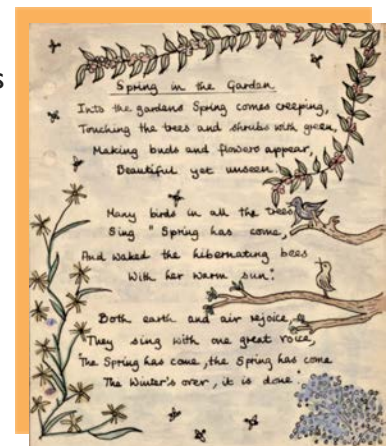 s
Spring in the Garden
Into the gardens Spring comes creeping,
Touching the trees and shrubs with green,
Making buds and flowers appear,
Beautiful yet unseen.
Many birds in all the trees
Sing "Spring has come,
And waked the hibernating bees
With her warm sun".
Both earth and air rejoice,
"They sing with one great voice,
"The Spring has come, the Spring has come
The Winter's over, it is done"